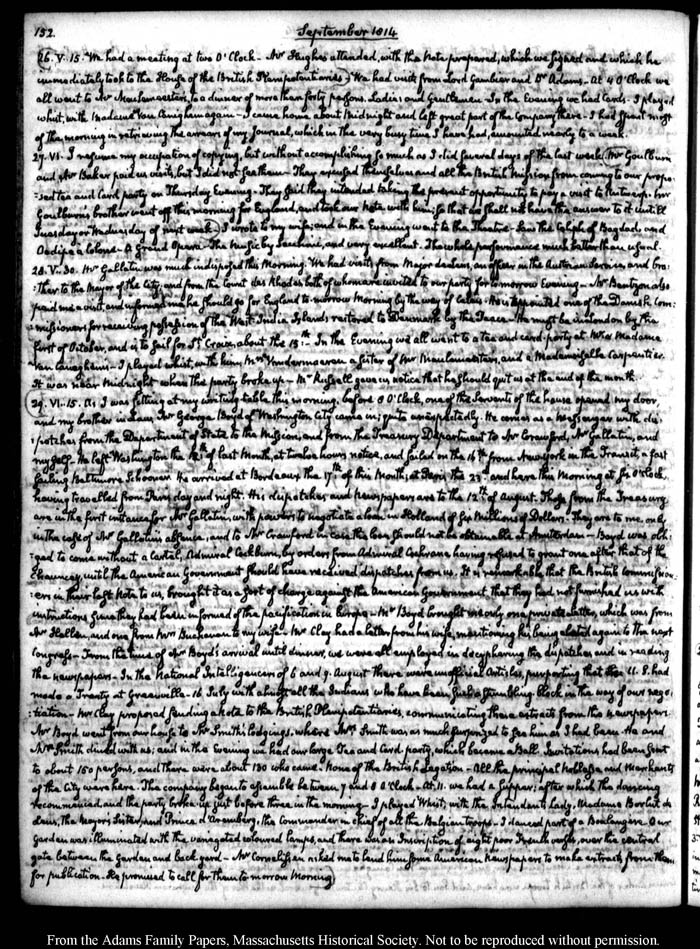 132.
September 1814
26. V. 15. We had a meeting at two O'Clock. Mr Hughes attended, with the Note prepared, which we signed and which he
immediately took to the House of the British Plenipotentiaries. We had visits from Lord Gambier and Dr Adams. At 4 O'Clock we
all went to Mr Meulemeester's, to a dinner of more than forty persons. Ladies and Gentlemen. In the Evening we had Cards. I played
whist, with Madame Van Canaghem again. I came home about Midnight and left great part of the Company there. I had spent most
of the morning in retrieving the arrears of my Journal, which in the very busy time I have had, amounted nearly to a week.
27. VI. I resume my occupation of copying, but without accomplishing so much as I did several days of the last week. Mr Goulburn
and Mr Baker paid us visits, but I did not see them. They excused themselves and all the British Mission from coming to our propo-
-sed tea and Card party on Thursday Evening. They said they intended taking the present opportunity to pay a visit to Antwerp. Mr
Goulburn's brother went off this morning for England, and took our Note with him; so that we shall not have the answer to it untill
Tuesday or Wednesday of next week. I wrote to my wife; and in the Evening went to the Theatre. Saw the Caliph of Bagdad, and
Oedipe a Colone. A Grand Opera. The Music by Sacchini, and very excellent. The whole performance much better than usual.
28. V. 30. Mr Gallatin was much indisposed this Morning. We had visits from Major an officer in the Austrian Service, and bro-
-ther to the Mayor of the City, and from the Count das Rhodes both of whom are invited to our party for tomorrow Evening. Mr Bentzon also
paid me a visit and informed me he should go for England to-morrow Morning by the way of Calais. He is appointed one of the Danish Com-
-missioners for receiving possession of the West-India Islands restored to Denmark by the Peace. He must be in London by the
first of October, and is to sail for St Croix, about the 15th. In the Evening we all went to a tea and card-party at Mr & Madame
Van Canaghem's. I played whist, with him, Mrs a sister of Mr Meulemeester's, and a Mademoiselle Carpentier.
It was near Midnight when this party broke up. Mr Russell gave us notice that he should quit us at the end of the month.
29. VI. 15. As I was sitting at my writing-table this morning, before 6 O'Clock, one of the Servants of the house opened my door
and my brother in law, Mr George Boyd of Washington City came in; quite unexpectedly. He comes as a Messenger with dis-
-patches from the Department of State to the Mission, and from the Treasury Department to Mr Crawford, Mr Gallatin, and
myself. He left Washington the 12th of last Month, at twelve hours notice, and sailed on the 16th from New-York in the Transit, a fast
sailing Baltimore Schooner. He arrived at Bordeaux the 17th of this Month, at Paris the 23d and here this Morning at six O'Clock,
having travelled from Paris, day and night. His dispatches and newspapers are to the 12th of August. Those from the Treasury
are in the first instance for Mr Gallatin, with powers to negotiate a loan in Holland of Six Millions of Dollars. They are to me, only
in the case of Mr Gallatin's absence, and to Mr Crawford in case the loan should not be obtainable at Amsterdam. Boyd was obli-
-ged to come without a Cartel, Admiral Cockburn, by orders from Admiral Cochrane having refused to grant one after that of the
Chauncey, until the American Government should have received dispatches from us. It is remarkable that the British Commission-
-ers in their last Note to us, brought it as a sort of charge against the American Government, that they had not furnished us with
instructions since they had been informed of the pacification in Europe. Mr Boyd brought me only one private letter, which was from
Mr Hellen, and one from Mrs Buchanan to my wife. Mr Clay had a letter from his wife, mentioning his being elected again to the next
Congress. From the time of Mr Boyd's arrival until dinner, we were all employed in decyphering the dispatches, and in reading
the newspapers. In the National Intelligencers of 6 and 9. August there were unofficial Articles, purporting that the U.S. had
made a Treaty at Greenville. 16 July with almost all the Indians who have been such a stumbling-block in the way of our nego-
-tiation. Mr Clay proposed sending a Note to the British Plenipotentiaries, communicating these extracts from the Newspapers.
Mr Boyd went from our house to Mr Smith's lodgings, where Mrs Smith was as much surprized to see him as I had been. He and
Mrs Smith dined with us; and in the evening we had our large Tea and Card party, which became a Ball. Invitations had been sent
to about 150 persons, and there were about 130 who came. None of the British Legation. All the principal Noblesse and Merchants
of the City were here. The company began to assemble between 7 and 8 O'Clock. At 11. we had a Supper; after which the dancing
recommenced, and the party broke up just before three in the morning. I played Whist, with the Intendant's Lady, Madame Borlut
the Mayor's Sister, and Prince d'Aremberg, the Commander in chief of all the Belgian troops. I danced part of a Boulangere. Our
Garden was illuminated with the variegated coloured lamps, and there was an Inscription of eight poor French verses, over the central
gate between the Garden and back yard. Mr Cornelissen asked me to lend him some American Newspapers to make extracts from them
for publication. He promised to call for them to-morrow Morning.
From the Adams Family Papers, Massachusetts Historical Society. Not to be reproduced without permission.